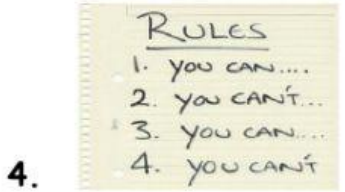 RULES
1. YOU CAN....
2. YOU CAN'T...
3. YOU CAN....
4. YOU CAN'T
4.